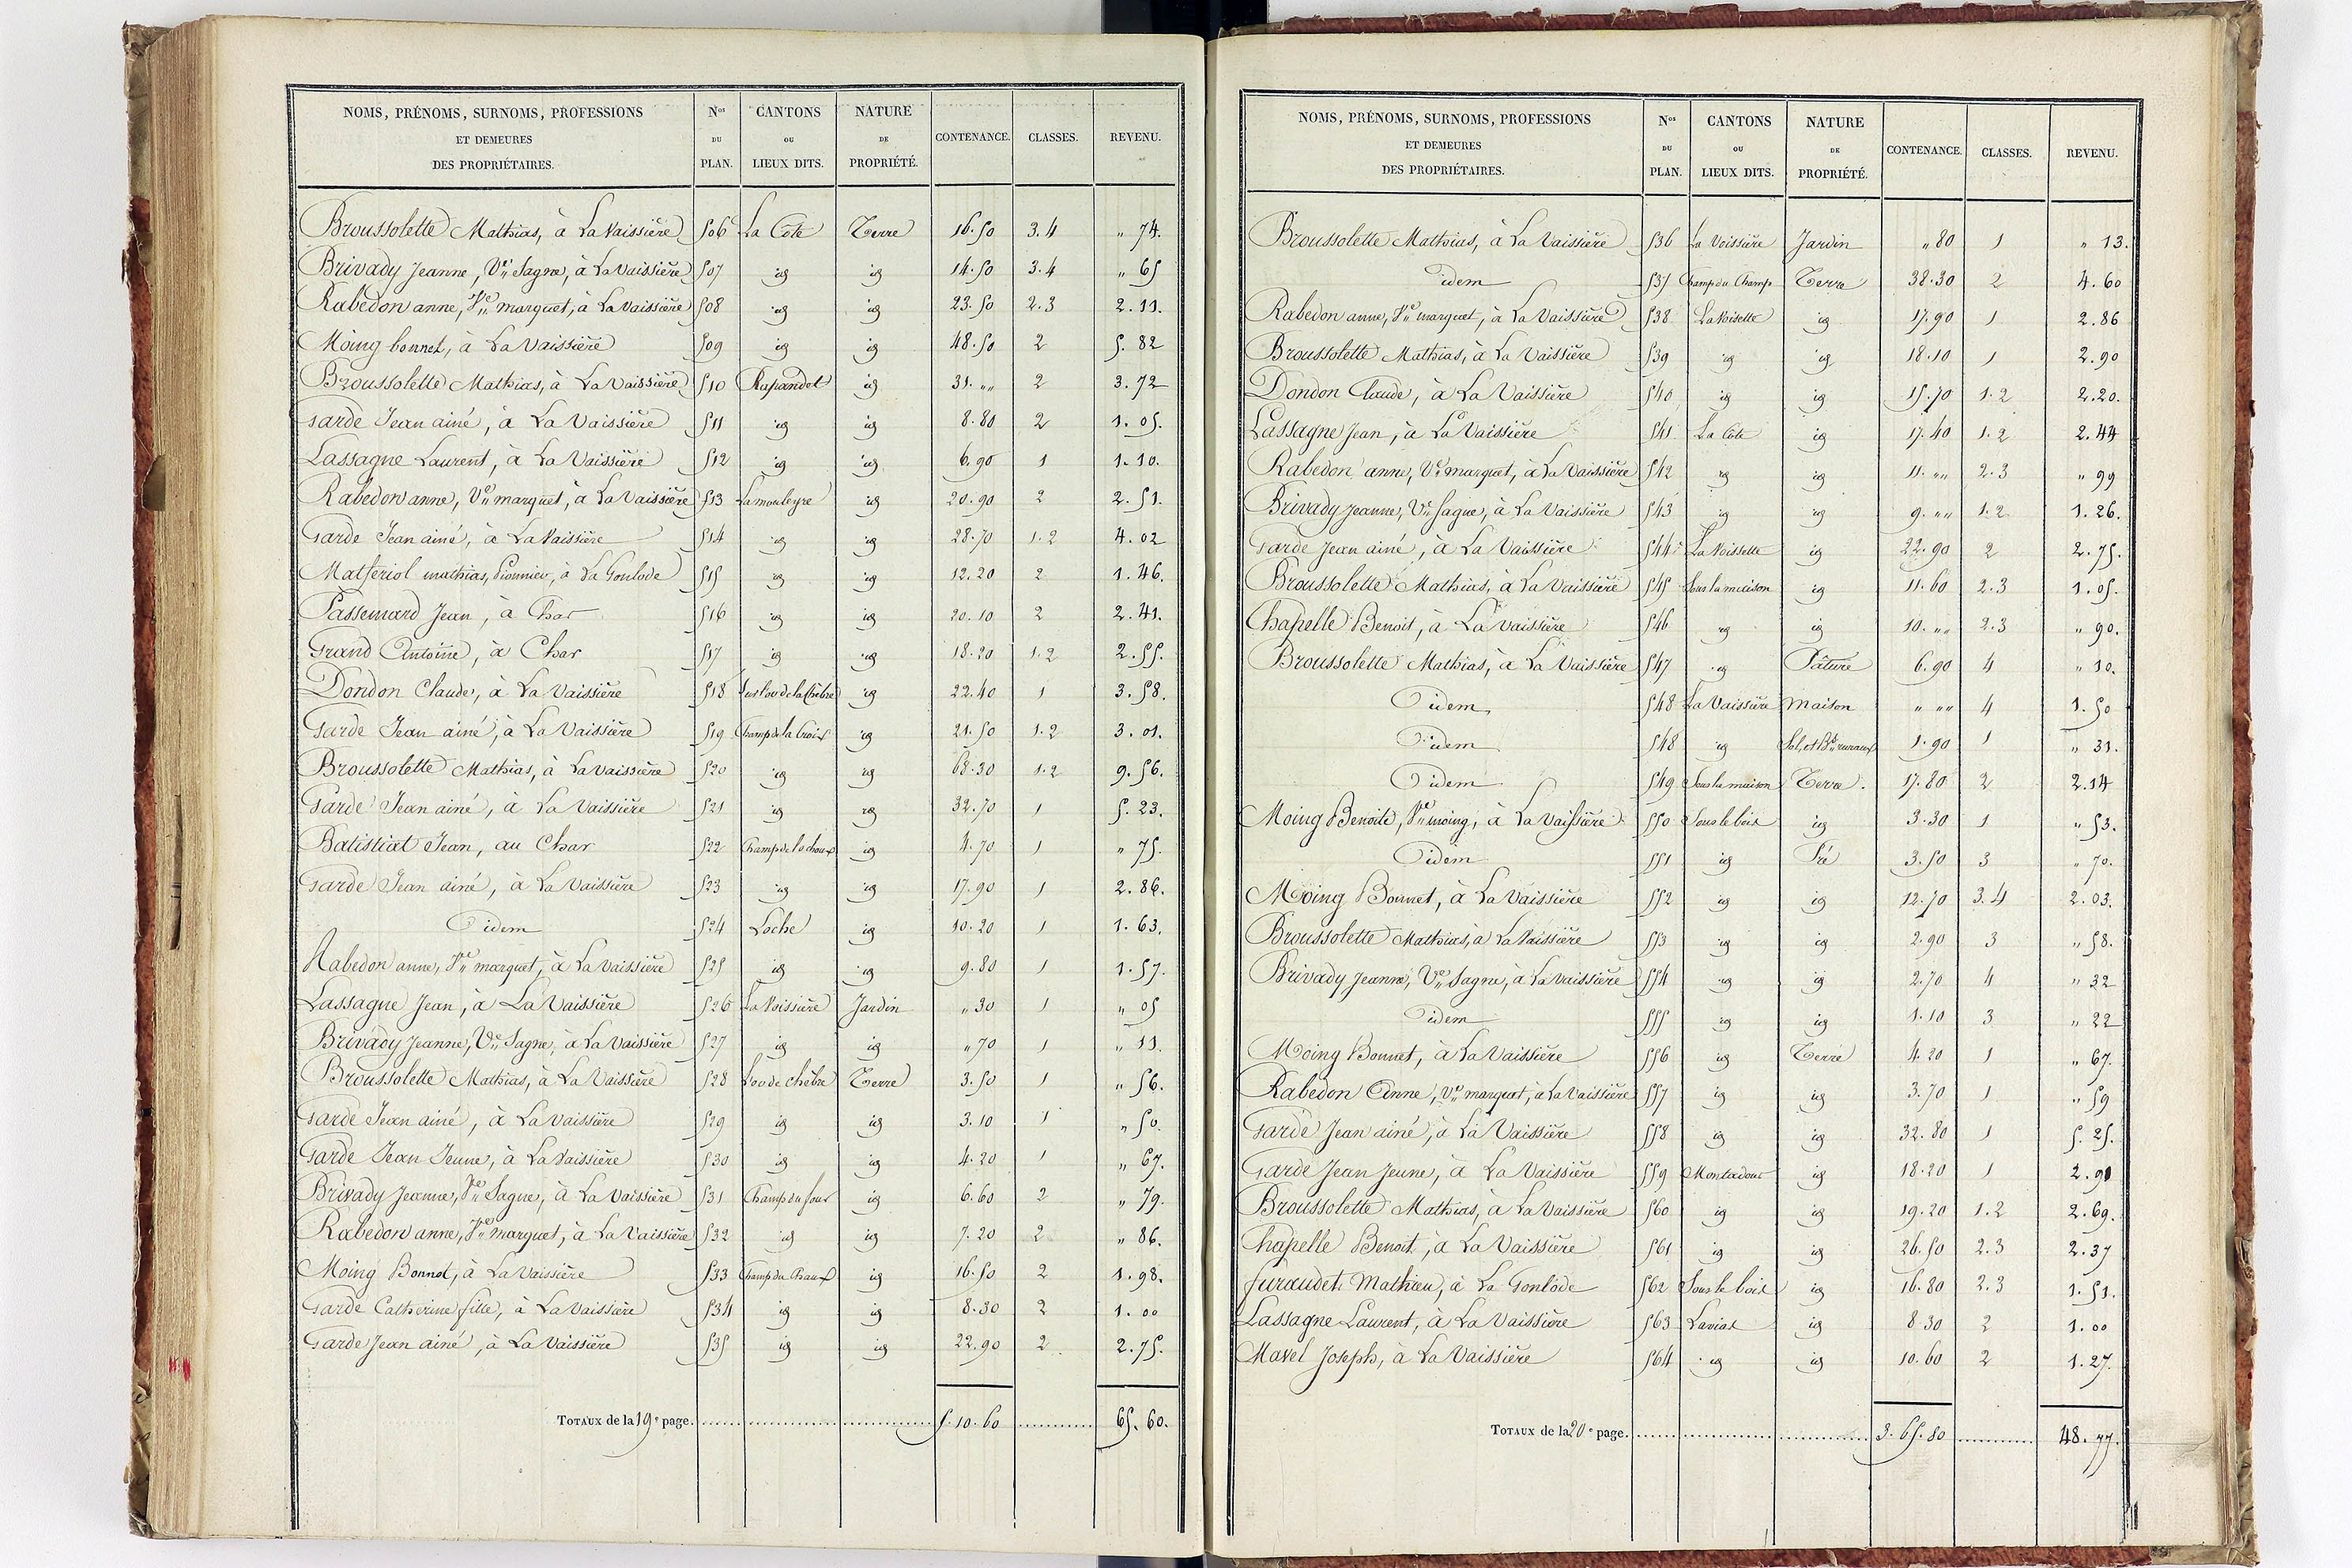 NOMS, PRÉNOMS, SURNOMS, PROFESSIONS ET DEMEURES DES PROPRIÉTAIRES. Nos DU PLAN. CANTONS OU LIEUX DITS. NATURE DE PROPRIÉTÉ. CONTENANCE. CLASSES. REVENU.
Broussolette Mathias, à La Vaissière 506 La Côte Terre 16.50 3.4 „ 74.
Brivady Jeanne, Ve Sagne, à La Vaissière 507 id id 14.50 3.4 „ 65
Rabedon anne, Ve marquet, à La Vaissière 508 id id 23.50 2.3 2.11.
Moing bonnet, à La Vaissière 509 id id 48.50 2 5.82
Broussolette Mathias, à La Vaissière 510 Rapandet id 31. „„ 2 3.72
Garde Jean ainé, à La Vaissière 511 id id 8.80 2 1.05.
Lassagne Laurent, à La Vaissière 512 id id 6.90 1 1.10.
Rabedon anne, Ve marquet, à La Vaissière 513 Lamouleyre id 20.90 2 2.51.
Garde Jean ainé, à La Vaissière 514 id id 28.70 1.2 4.02
Matferiol mathias, Pionnier, à La Goulode 515 id id 12.20 2 1.46.
Passemard Jean, à Char 516 id id 20.10 2 2.41.
Grand Antoine, à Char 517 id id 18.20 1.2 2.55.
Dondon Claude, à La Vaissière 518 Sus l'ou de la Chèbre id 22.40 1 3.58.
Garde Jean ainé, à La Vaissière 519 Champ de la Croix id 21.50 1.2 3.01.
Broussolette Mathias, à La Vaissière 520 id id 68.30 1.2 9.56.
Garde Jean ainé, à La Vaissière 521 id id 32.70 1 5.23.
Batistiat Jean, au Char 522 Champ de la choux id 4.70 1 „ 75.
Garde Jean ainé, à La Vaissière 523 id id 17.90 1 2.86.
idem 524 Loche id 10.20 1 1.63.
Rabedon anne, Ve marquet, à La Vaissière 525 id id 9.80 1 1.57.
Lassagne Jean, à La Vaissière 526 La Voissière Jardin „ 30 1 „ 05
Brivady Jeanne, Ve Sagne, à La Vaissière 527 id id „ 70 1 „ 11.
Broussolette Mathias, à La Vaissière 528 L'ou de chèbre Terre 3.50 1 „ 56.
Garde Jean ainé, à La Vaissière 529 id id 3.10 1 „ 50.
Garde Jean Jeune, à La Vaissière 530 id id 4.20 1 „ 67.
Brivady Jeanne, Ve Sagne, à La Vaissière 531 Champ du four id 6.60 2 „ 79.
Rabedon anne, Ve marquet, à La Vaissière 532 id id 7.20 2 „ 86.
Moing Bonnet, à La Vaissière 533 Champ du Chaux id 16.50 2 1.98.
Garde Catherine fille, à La Vaissière 534 id id 8.30 2 1.00
Garde Jean ainé, à La Vaissière 535 id id 22.90 2 2.75.
TOTAUX de la 19e page. 5.10.60 65.60.
NOMS, PRÉNOMS, SURNOMS, PROFESSIONS ET DEMEURES DES PROPRIÉTAIRES. Nos DU PLAN. CANTONS OU LIEUX DITS. NATURE DE PROPRIÉTÉ. CONTENANCE. CLASSES. REVENU.
Broussolette Mathias, à La Vaissière 536 La Voissière Jardin „ 80 1 „ 13.
idem 537 Champ du Champ Terre 38.30 2 4.60
Rabedon anne, Ve marquet, à La Vaissière 538 La Noisette id 17.90 1 2.86
Broussolette Mathias, à La Vaissière 539 id id 18.10 1 2.90
Dondon Claude, à La Vaissière 540 id id 15.70 1.2 2.20.
Lassagne Jean, à La Vaissière 541 La Côte id 17.40 1.2 2.44
Rabedon anne, Ve marquet, à La Vaissière 542 id id 11. „„ 2.3 „ 99
Brivady Jeanne, Ve Sagne, à La Vaissière 543 id id 9. „„ 1.2 1.26.
Garde Jean ainé, à La Vaissière 544 La Noissette id 22.90 2 2.75.
Broussolette Mathias, à La Vaissière 545 Sous la maison id 11.60 2.3 1.05.
Chapelle Benoit, à La Vaissière 546 id id 10. „„ 2.3 „ 90.
Broussolette Mathias, à La Vaissière 547 id Pâture 6.90 4 „ 10.
idem 548 La Vaissière Maison „ „„ 4 1.50
idem 548 id Sol, et Bts ruraux 1.90 1 „ 31.
idem 549 Sous la maison Terre. 17.80 2 2.14
Moing Benoite, Ve moing, à La Vaissière 550 Sous le bois id 3.30 1 „ 53.
idem 551 id Pré 3.50 3 „ 70.
Moing Bonnet, à La Vaissière 552 id id 12.70 3.4 2.03.
Broussolette Mathias, à La Vaissière 553 id id 2.90 3 „ 58.
Brivady Jeanne, Ve Sagne, à La Vaissière 554 id id 2.70 4 „ 32
idem 555 id id 1.10 3 „ 22
Moing Bonnet, à La Vaissière 556 id Terre 4.20 1 „ 67.
Rabedon Anne, Ve marquet, à La Vaissière 557 id id 3.70 1 „ 59
Garde Jean ainé, à La Vaissière 558 id id 32.80 1 5.25.
Garde Jean Jeune, à La Vaissière 559 Montadour id 18.20 1 2.91
Broussolette Mathias, à La Vaissière 560 id id 19.20 1.2 2.69.
Chapelle Benoit, à La Vaissière 561 id id 26.50 2.3 2.37
Juraudet Mathieu, à La Goulode 562 Sous le bois id 16.80 2.3 1.51.
Lassagne Laurent, à La Vaissière 563 Lavial id 8.30 2 1.00
Mavel Joseph, à La Vaissière 564 id id 10.60 2 1.27.
TOTAUX de la 20e page. 3.65.80 48.77.